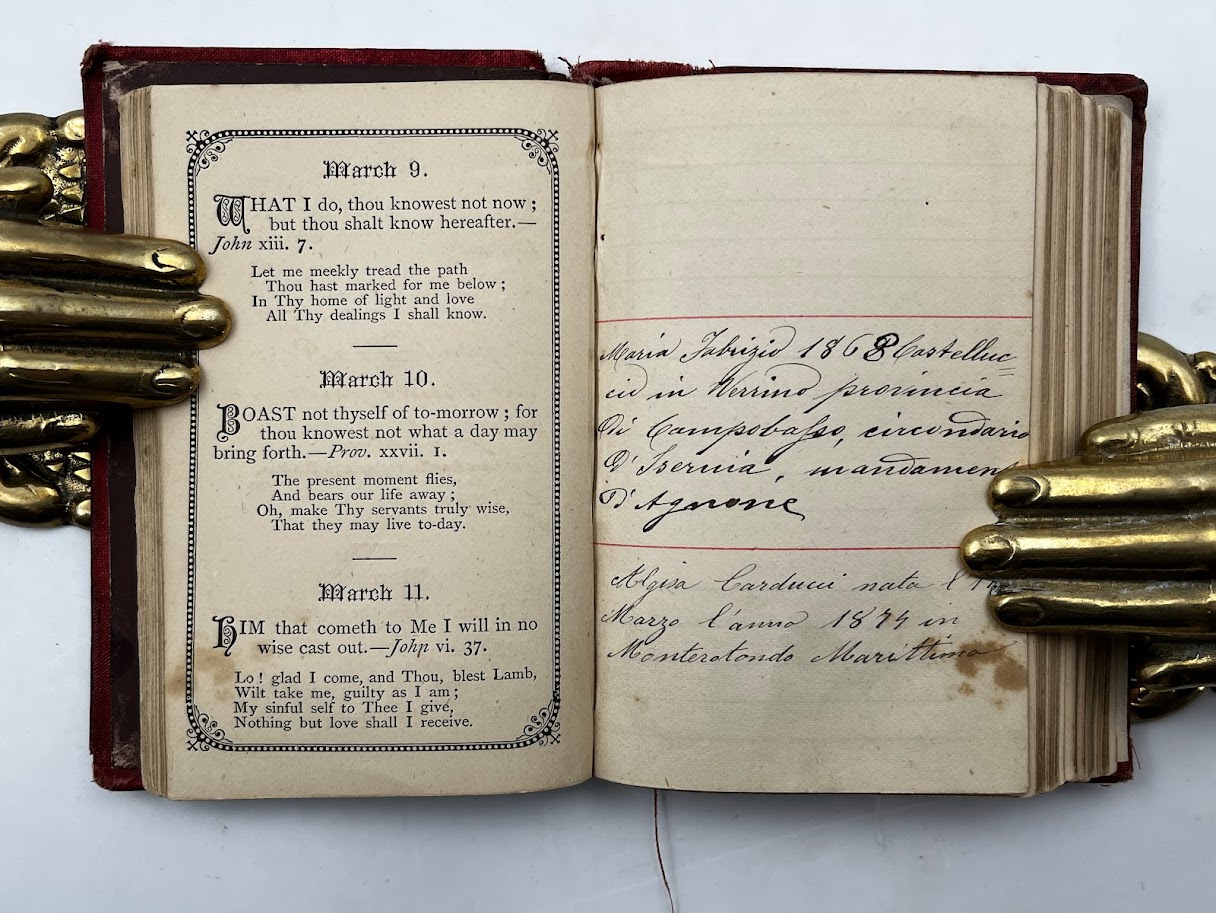 March 9.
WHAT I do, thou knowest not now ;
but thou shalt know hereafter.—
John xiii. 7.
Let me meekly tread the path
Thou hast marked for me below ;
In Thy home of light and love
All Thy dealings I shall know.
March 10.
BOAST not thyself of to-morrow ; for
thou knowest not what a day may
bring forth.—Prov. xxvii. 1.
The present moment flies,
And bears our life away ;
Oh, make Thy servants truly wise,
That they may live to-day.
March 11.
HIM that cometh to Me I will in no
wise cast out.—John vi. 37.
Lo ! glad I come, and Thou, blest Lamb,
Wilt take me, guilty as I am ;
My sinful self to Thee I give,
Nothing but love shall I receive.
Maria Fabrizio 1868 Castelluc=
cio in Verrino provincia
Di Campobasso, circondario
D'Isernia, mandamen
D'Agnone
Algisa Carducci nata l'
Marzo l'anno 1874 in
Monterotondo Marittimo